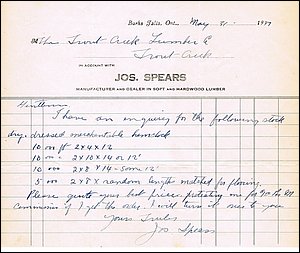 Burks Falls, Ont., May 31 1917
M The Trout Creek Lumber Co
Trout Creek
IN ACCOUNT WITH
JOS. SPEARS
MANUFACTURER AND DEALER IN SOFT AND HARDWOOD LUMBER
Gentlemen
I have an inquiry for the following stock
dry dressed merchantable hemlock
10 000 ft 2x4x12
10 000 - 2x10x14 or 12'
10 000 2x8 x 14 - some 12'
5 000 2x8 x random lengths matched for flooring.
Please quote your best prices protecting me for
Commission if I get the order. I will turn it over to you
Yours Truly
Jos Spears